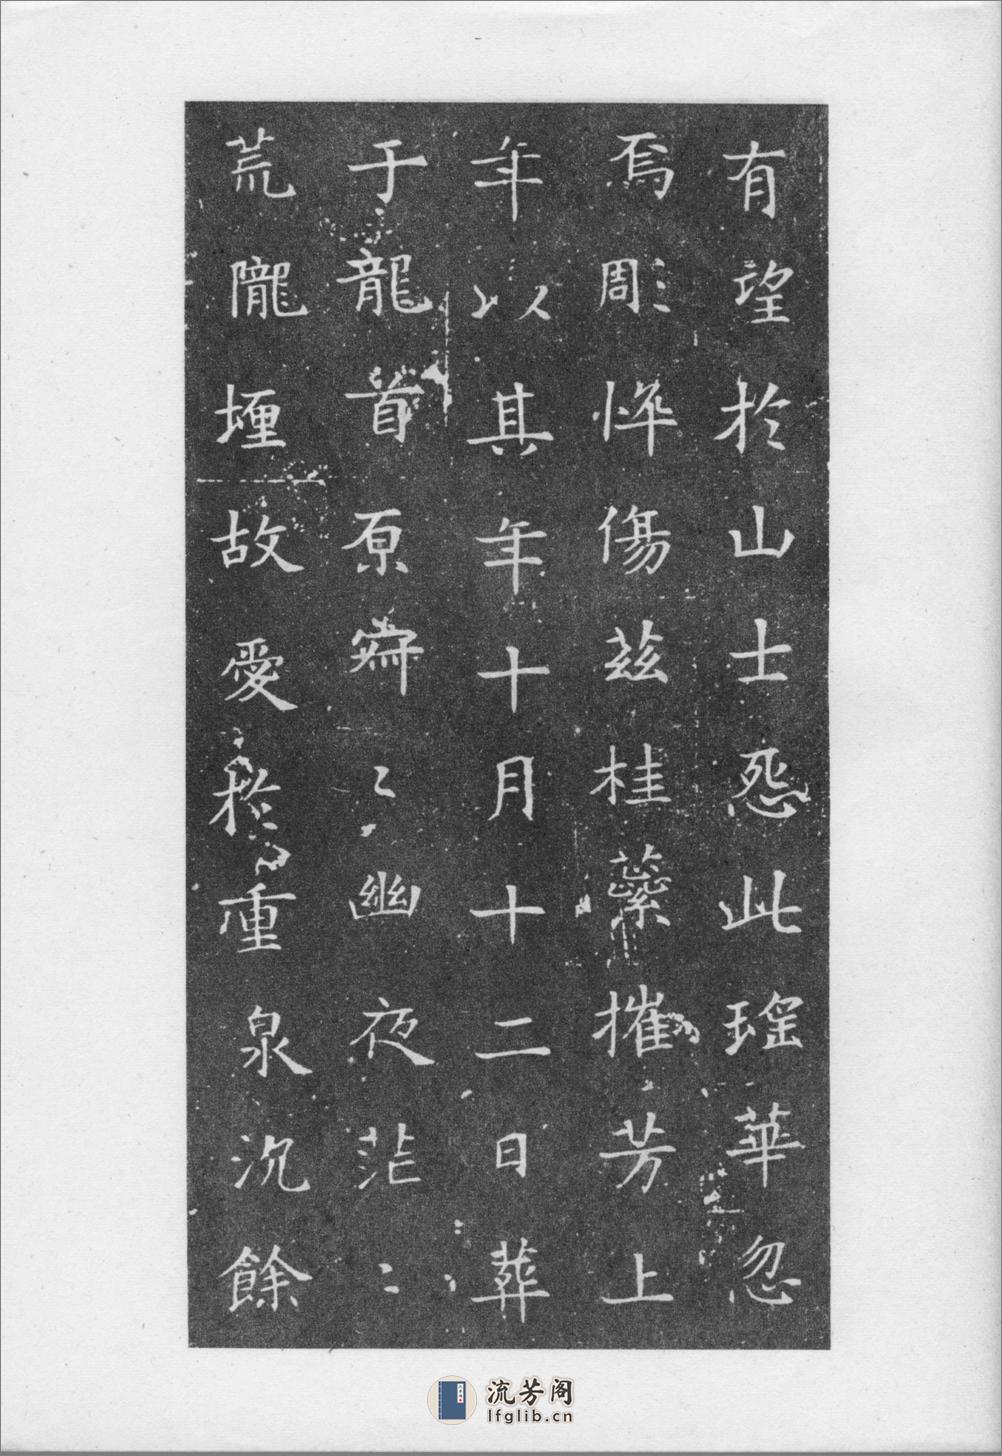 有望於山士怨此瑤華忽
焉彫悴傷茲桂蘂摧芳上
年以其年十月十二日葬
于龍首原寂〻幽夜茫〻
荒隴埋故愛於重泉沉餘
流芳阁
lfglib.cn